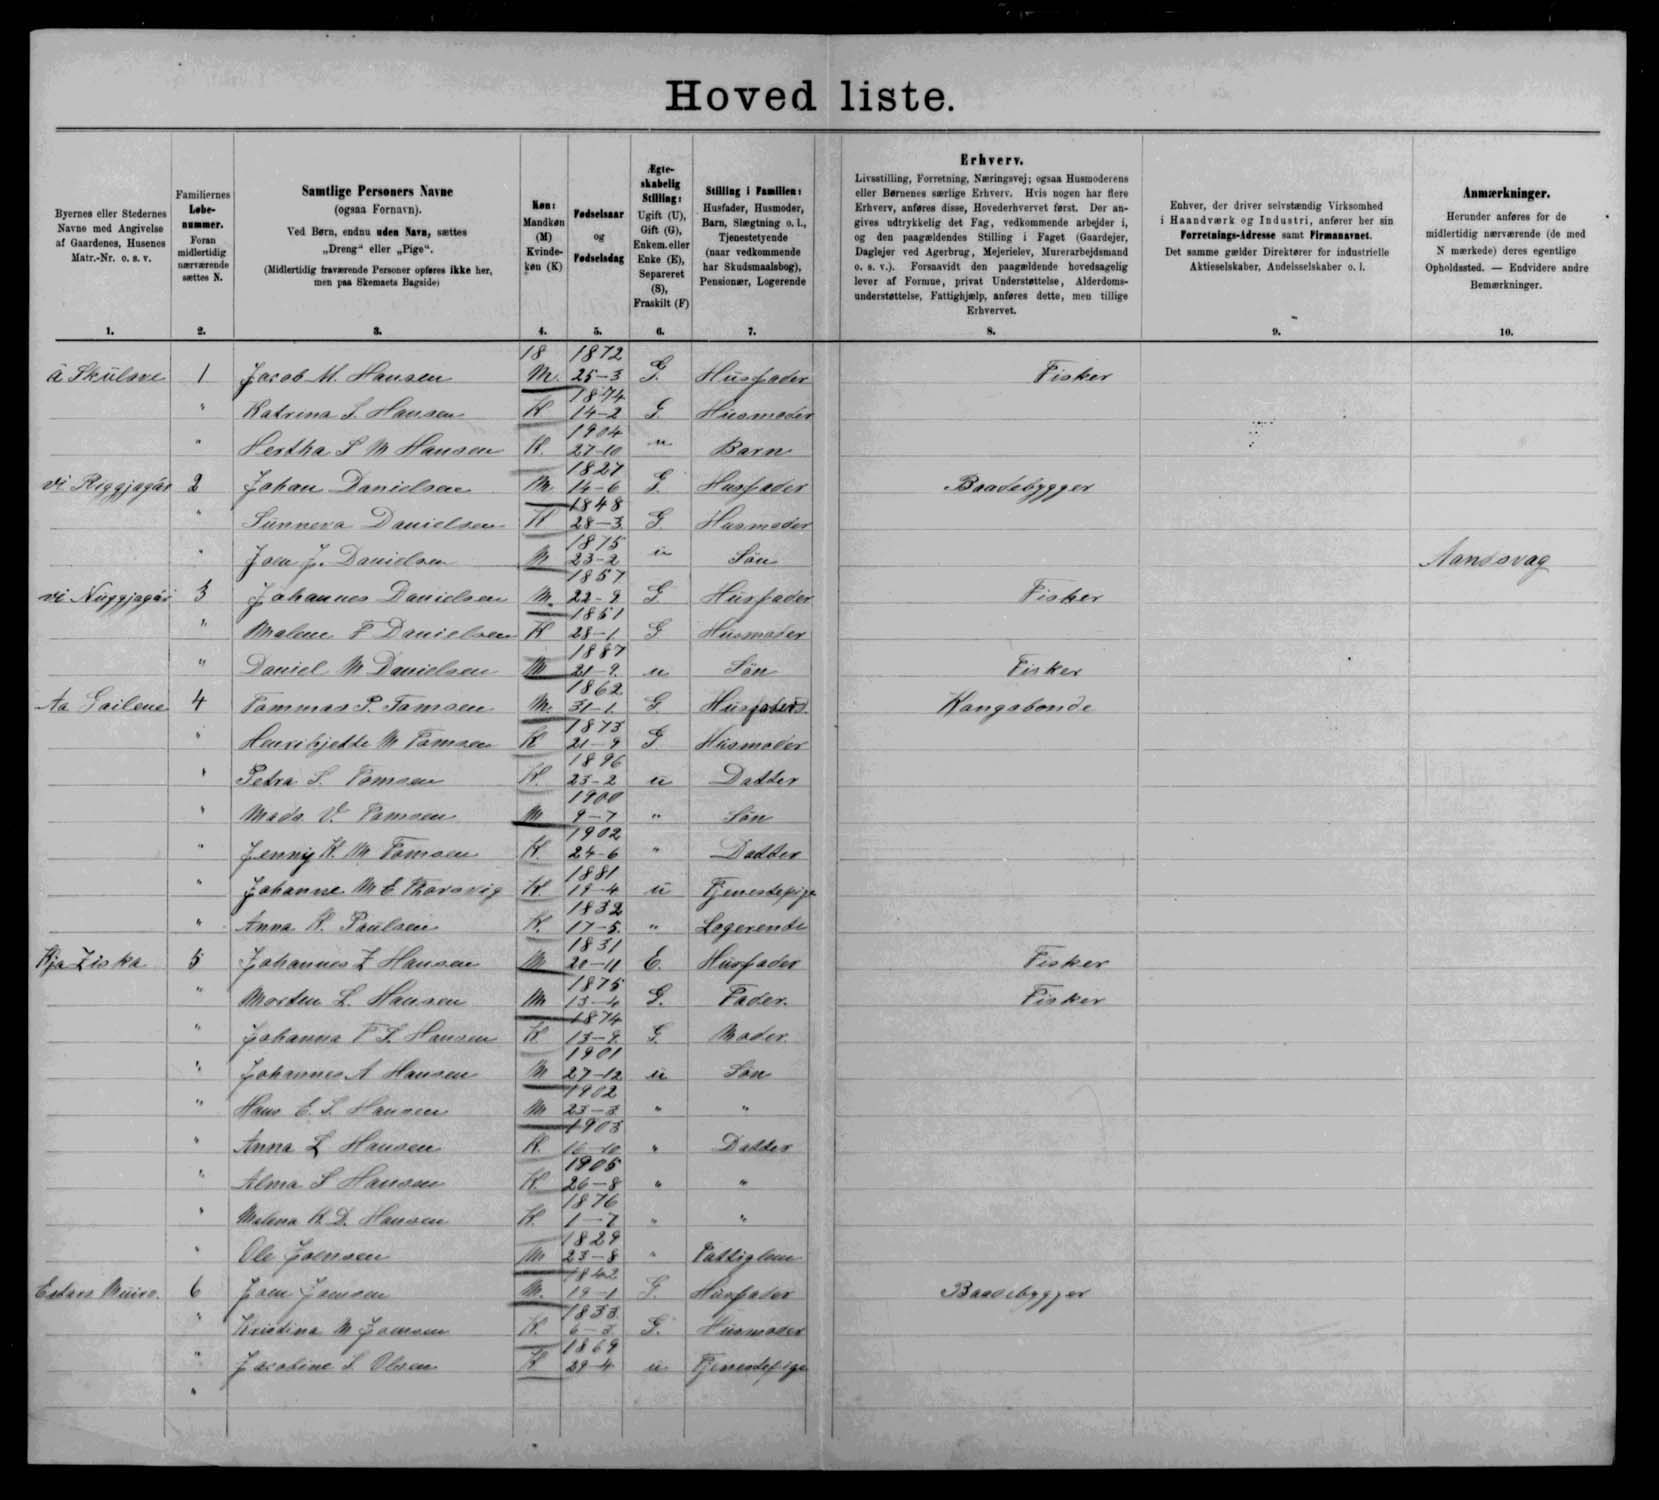 Hoved liste.
Byernes eller Stedernes
Navne med Angivelse
af Gaardenes, Husenes
Matr.-Nr. o. s. v.
1.
Familiernes
Løbe-
nummer.
Foran
midlertidig
nærværende
sættes N.
2.
Samtlige Personers Navne
(ogsaa Fornavn).
Ved Børn, endnu uden Navn, sættes
„Dreng“ eller „Pige“.
(Midlertidig fraværende Personer opføres ikke her,
men paa Skemaets Bagside)
3.
Køn:
Mandkøn
(M)
Kvinde-
køn (K)
4.
Fødselsaar
og
Fødselsdag
5.
Ægte-
skabelig
Stilling:
Ugift (U),
Gift (G),
Enkem. eller
Enke (E),
Separeret
(S),
Fraskilt (F)
6.
Stilling i Familien:
Husfader, Husmoder,
Barn, Slægtning o. l.,
Tjenestetyende
(naar vedkommende
har Skudsmaalsbog),
Pensionær, Logerende
7.
Erhverv.
Livsstilling, Forretning, Næringsvej; ogsaa Husmoderens
eller Børnenes særlige Erhverv. Hvis nogen har flere
Erhverv, anføres disse, Hovederhvervet først. Der an-
gives udtrykkelig det Fag, vedkommende arbejder i,
og den paagældendes Stilling i Faget (Gaardejer,
Daglejer ved Agerbrug, Mejerielev, Murerarbejdsmand
o. s. v.). Forsaavidt den paagældende hovedsagelig
lever af Formue, privat Understøttelse, Alderdoms-
understøttelse, Fattighjælp, anføres dette, men tillige
Erhvervet.
8.
Enhver, der driver selvstændig Virksomhed
i Haandværk og Industri, anfører her sin
Forretnings-Adresse samt Firmanavnet.
Det samme gælder Direktører for industrielle
Aktieselskaber, Andelsselskaber o. l.
9.
Anmærkninger.
Herunder anføres for de
midlertidig nærværende (de med
N mærkede) deres egentlige
Opholdssted. — Endvidere andre
Bemærkninger.
10.
18 1872
1 Jacob M. Hansen M. 25-3 G. Husfader Fisker
1874
" Katrina S. Hansen K 14-2 G. Husmoder
1904
" Hertha S M Hansen K. 27-10 u Barn
1827
2 Johan Danielsen M. 14-6 G. Husfader Baadebygger
1848
" Sunneva Danielsen K 28-3 G. Husmoder
1875
" Joen J. Danielsen M 23-2 u Søn
1857
3 Johannes Danielsen M. 22-9 G. Husfader Fisker
1851
" Malene F Danielsen K 28-1 G Husmoder
1887
" Daniel M Danielsen M 21-9. u Søn Fisker
1862
4 Tommas P. Tomsen M. 31-1. G. Husfader Kongsbonde
1873
" M Tomsen K 21-9 G Husmoder
1896
" Petra S. Tomsen K. 23-2 u Datter
1900
" Mads V Tomsen M 9-7 " Søn
1902
" Jenny K. M Tomsen K. 24-6 " Datter
1881
" Johanne M E Thorsvig K 19-4 u Tjenestepige
1832
" Anna K. Paulsen K. 17-5. " Logerende
1831
Hja Ziska 5 Johannes Z Hansen M 20-11 E. Husfader Fisker
1875
" Morten L. Hansen M 13-4 G. Fader. Fisker
1874
" Johanna F S. Hansen K 13-9. G. Moder.
1901
" Johannes A Hansen M 27-12 u Søn
1902
" Hans E. S. Hansen M 23-3 " "
1903
" Anna Z Hansen K. 16-10 " Datter
1905
" Alma S Hansen K. 26-8 " "
1876
" Malena K. D. Hansen K. 1-7 " "
1829
" Ole Joensen M 23-8 " Fattiglem
1842
6 Joen Joensen M. 19-1 G. Husfader Baadebygger
1833
" Kristina M Joensen K. 6-3 G. Husmoder
1869
" Jacobine S. Olsen K 29-4 u Tjenestepige
"